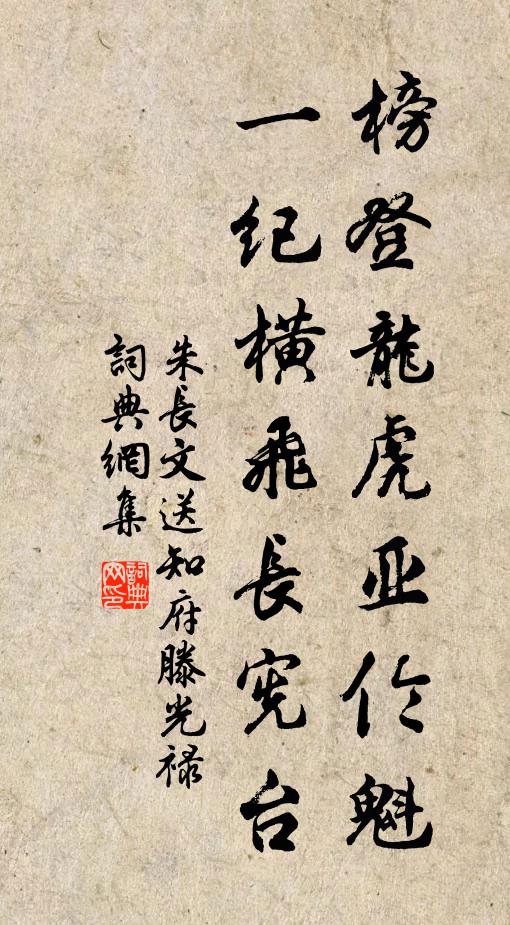 榜登龍虎亚伦魁
一纪橫飛長宪台
朱長文送知府滕光禄
詞典網集
詞典网印